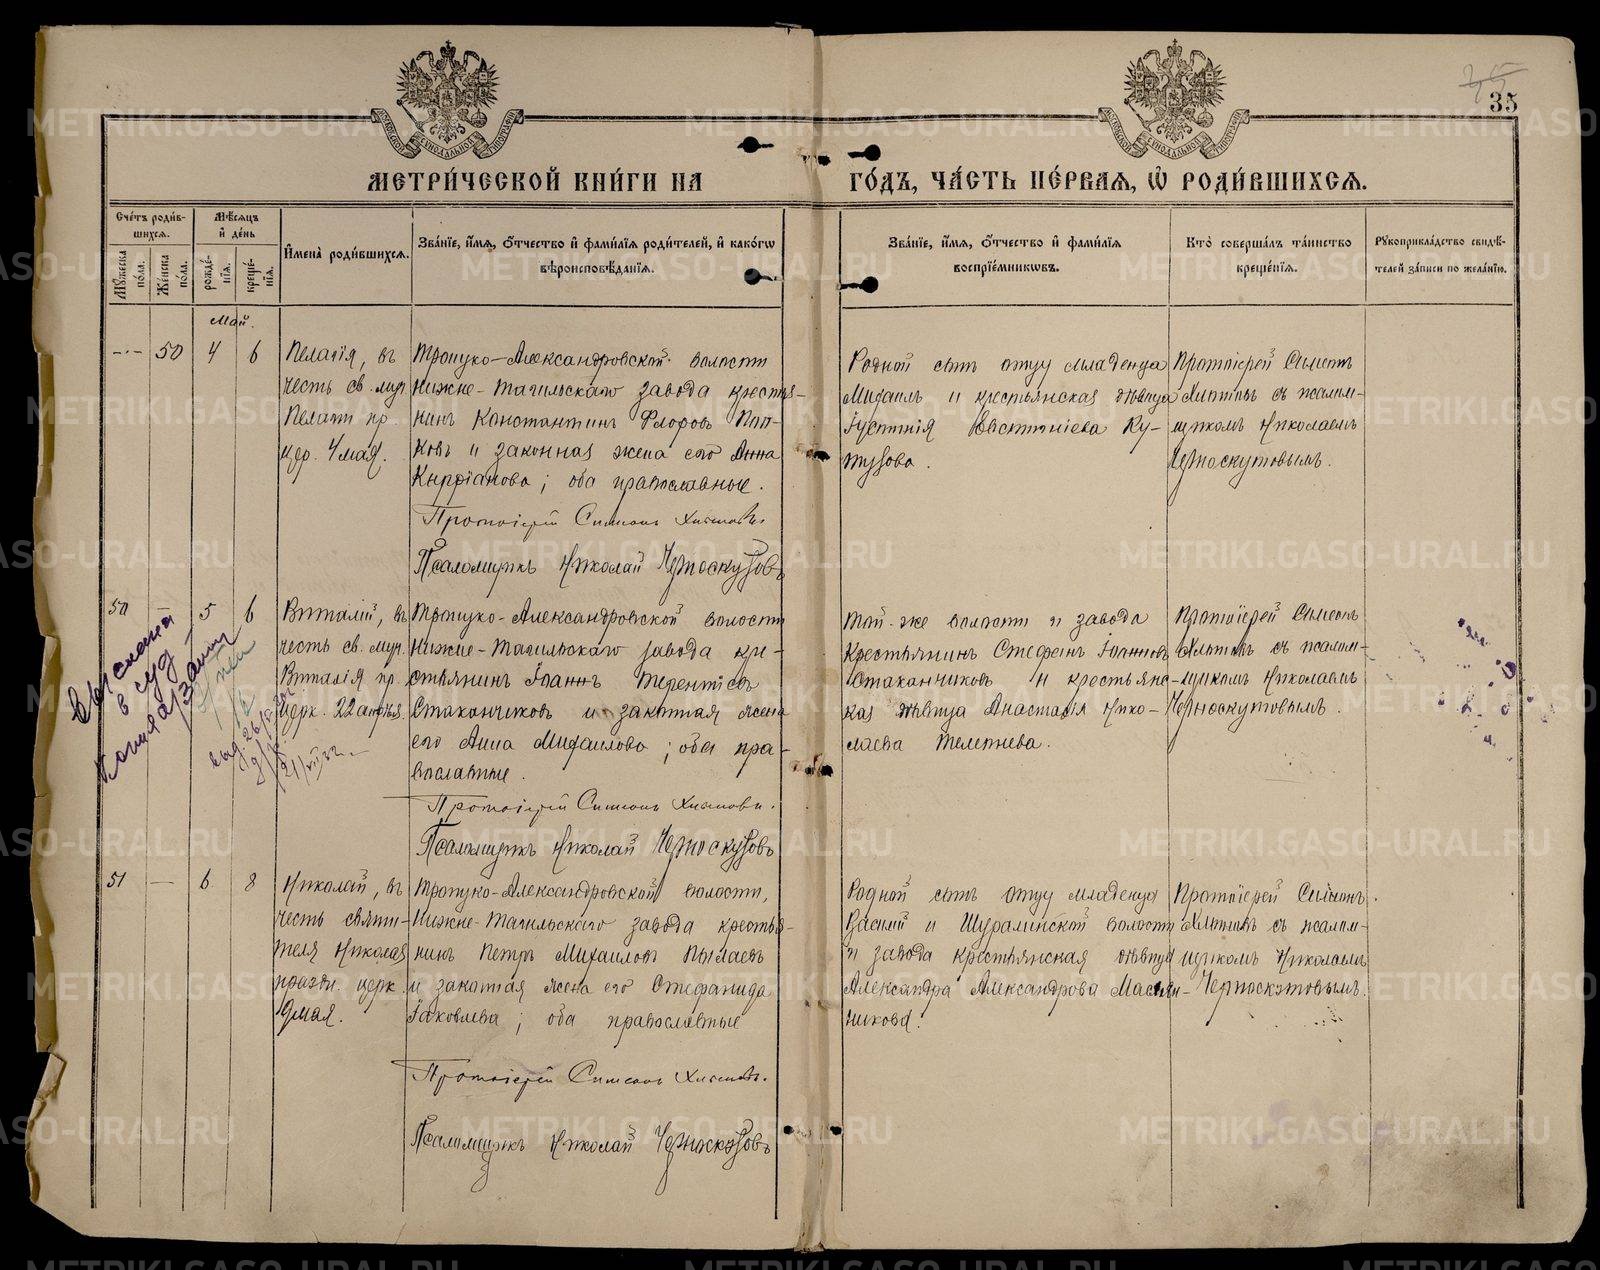 35
МЕТРИ́ЧЕСКОЙ КНИ́ГИ НА ГО́ДЪ, ЧА́СТЬ ПЕ́РВАЯ, Ѡ҆ РОДИ́ВШИХСЯ.
Сче́тъ роди́вшихся.
Мѣ́сяцъ и҆ де́нь
И҆мена̀ роди́вшихся.
Зва́нїе, и҆́мя, ѻ҆́тчество и҆ фами́лїя роди́телей, и҆ како́гѡ
вѣроисповѣ́данїя.
Зва́нїе, и҆́мя, ѻ҆́тчество и҆ фами́лїя
воспрїе́мникѡвъ.
Кто̀ соверша́лъ та́инство
креще́нїя.
Рꙋкоприкла́дство свидѣ́-
телей за́писи по жела́нїю.
Мꙋ́жеска по́ла.
Же́нска по́ла.
рожде́нїя.
креще́нїя.
Май.
50 4 6
Пелагія, въ
честь св. муч.
Пелагіи пр.
цер. 4 мая.
Троицко-Александровской волости
Нижне-Тагильскаго завода крестья-
нинъ Константинъ Флоровъ Поп-
ковъ и законная жена его Анна
Кирріанова; оба православные.
Протоіерей Симеонъ
Псаломщикъ Николай Черноскутовъ
Родной братъ отцу младенца
Михаилъ и крестьянская дѣвица
Іустинія Евстигніева Ку-
тузова.
Протоіерей Симеонъ
съ псалом-
щикомъ Николаемъ
Черноскутовымъ.
50 — 5 6
Виталій, въ
честь св. муч.
Виталія пр.
церк. 22 апрѣля.
Троицко-Александровской волости
Нижне-Тагильскаго завода кре-
стьянинъ Іоаннъ Терентіевъ
Стаканчиковъ и законная жена
его Анна Михаилова; оба пра-
вославные.
Протоіерей Симеонъ
Псаломщикъ Николай Черноскутовъ
Той-же волости и завода
Крестьянинъ Стефанъ Іоанновъ
Стаканчиковъ и крестьянс-
кая дѣвица Анастасія Нико-
лаева Телегнева.
Протоіерей Симеонъ
съ псалом-
щикомъ Николаемъ
Черноскутовымъ.
Выслана
в суд
копия
51 — 6 8
Николай, въ
честь святи-
теля Николая
праздн. церк.
9 мая.
Троицко-Александровской волости,
Нижне-Тагильскаго завода крестья-
нинъ Петръ Михаиловъ Пылаевъ
и законная жена его Стефанида
Іаковлева; оба православные
Протоіерей Симеонъ
Псаломщикъ Николай Черноскутовъ
Родной братъ отцу младенца
Василій и Шуралинской волости
и завода крестьянская дѣвица
Александра Александрова Маслен-
никова.
Протоіерей Симеонъ
съ псалом-
щикомъ Николаемъ
Черноскутовымъ.
METRIKI.GASO-URAL.RU